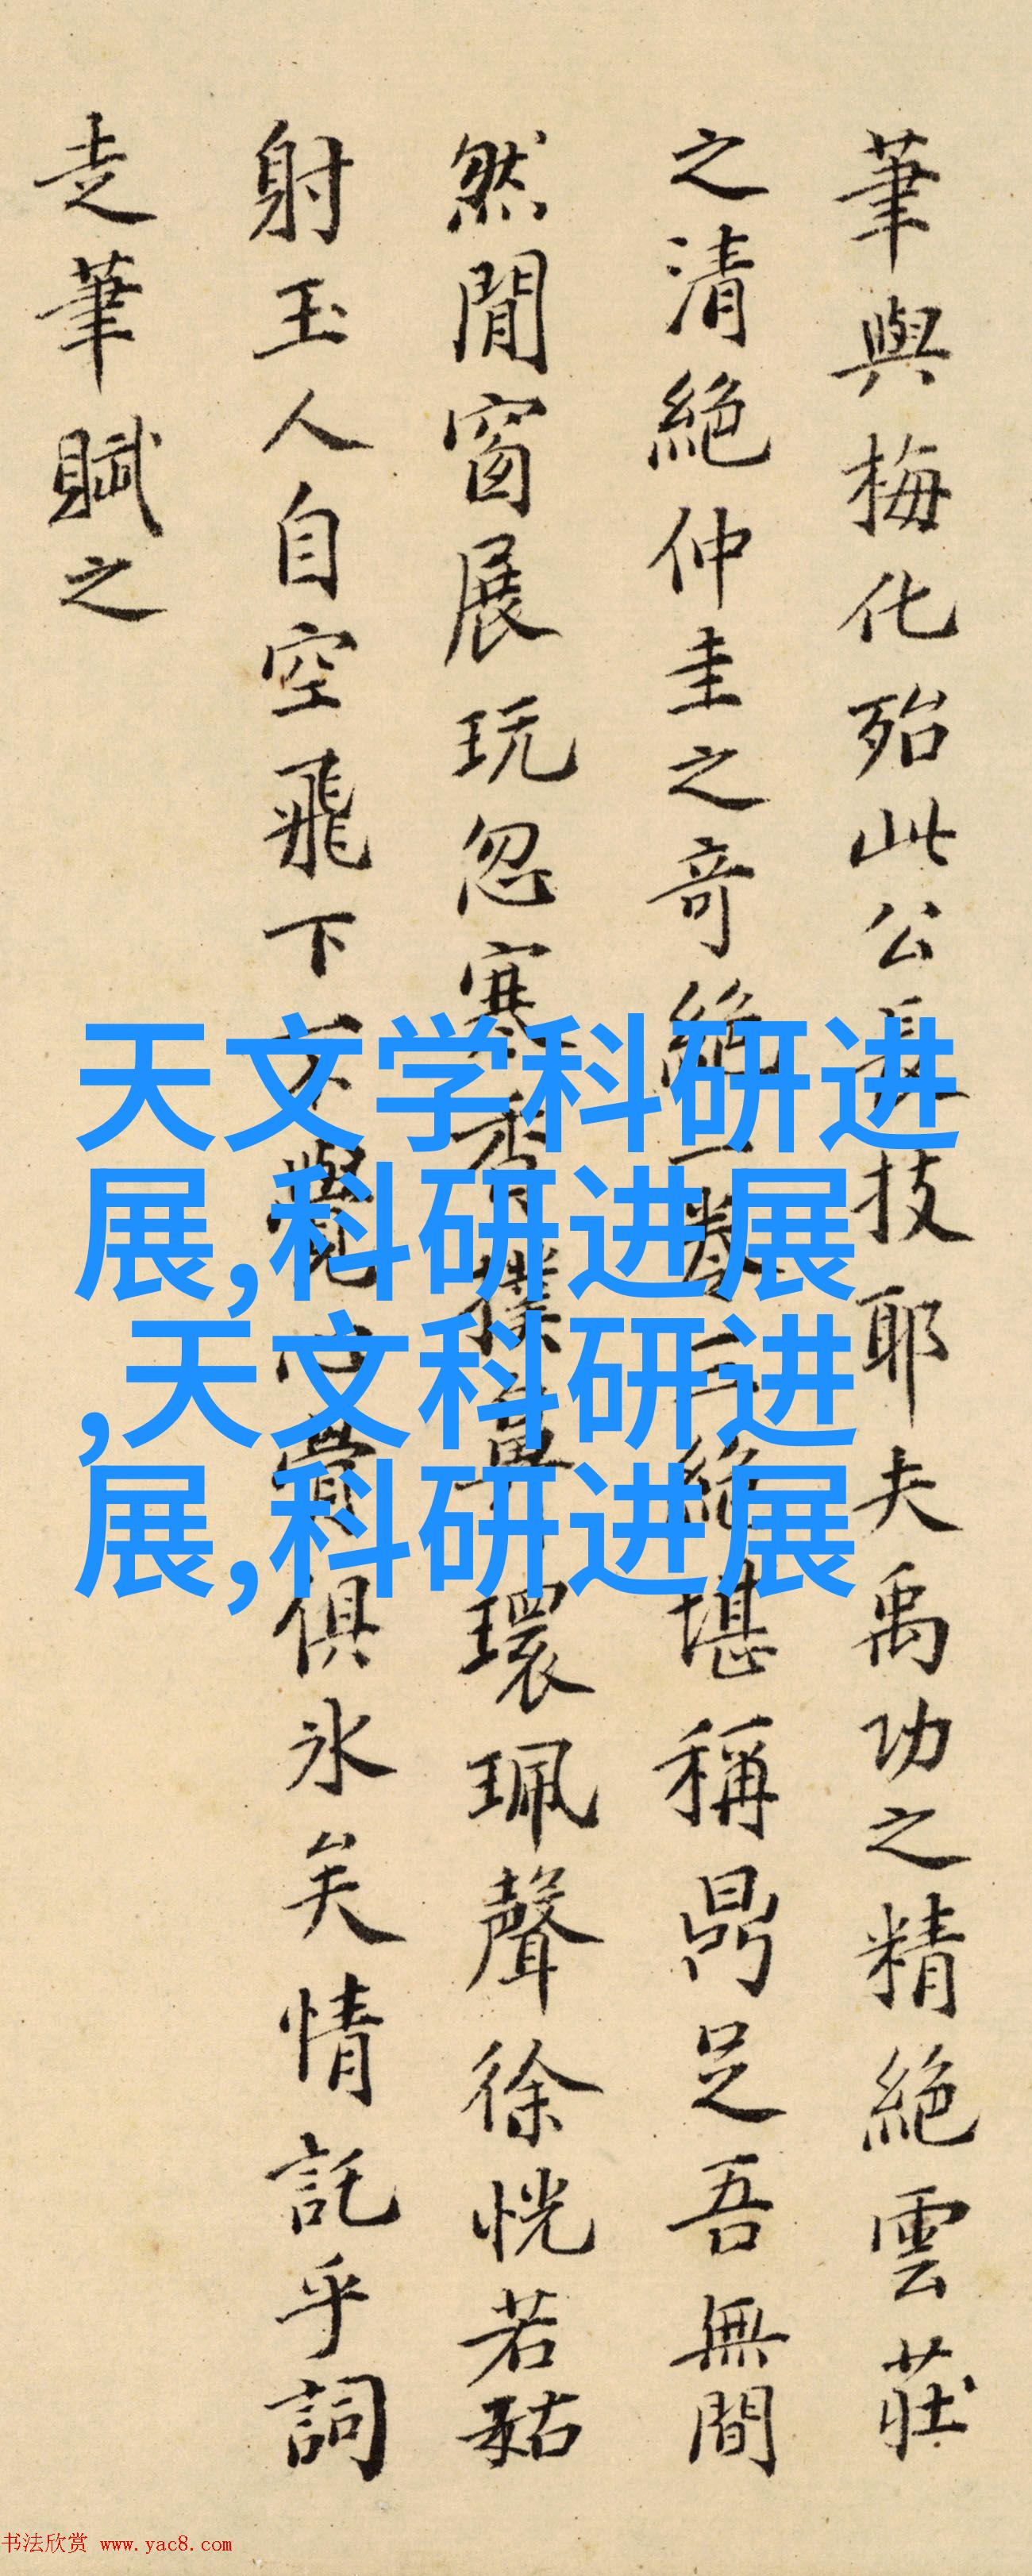 筆與梅化殆此公長技耶夫禹功之精絕雲莊
之清絕仲圭之奇絕一卷三絕堪稱鼎足吾無間
然閒窗展玩忽寒香撲鼻環珮聲徐恍若菇
射玉人自空飛下不覺心骨俱冰矣情託乎詞
走筆賦之
天文学科研进
展,科研进展
,天文科研进
展,科研进展
书法欣赏 www.yac8.com